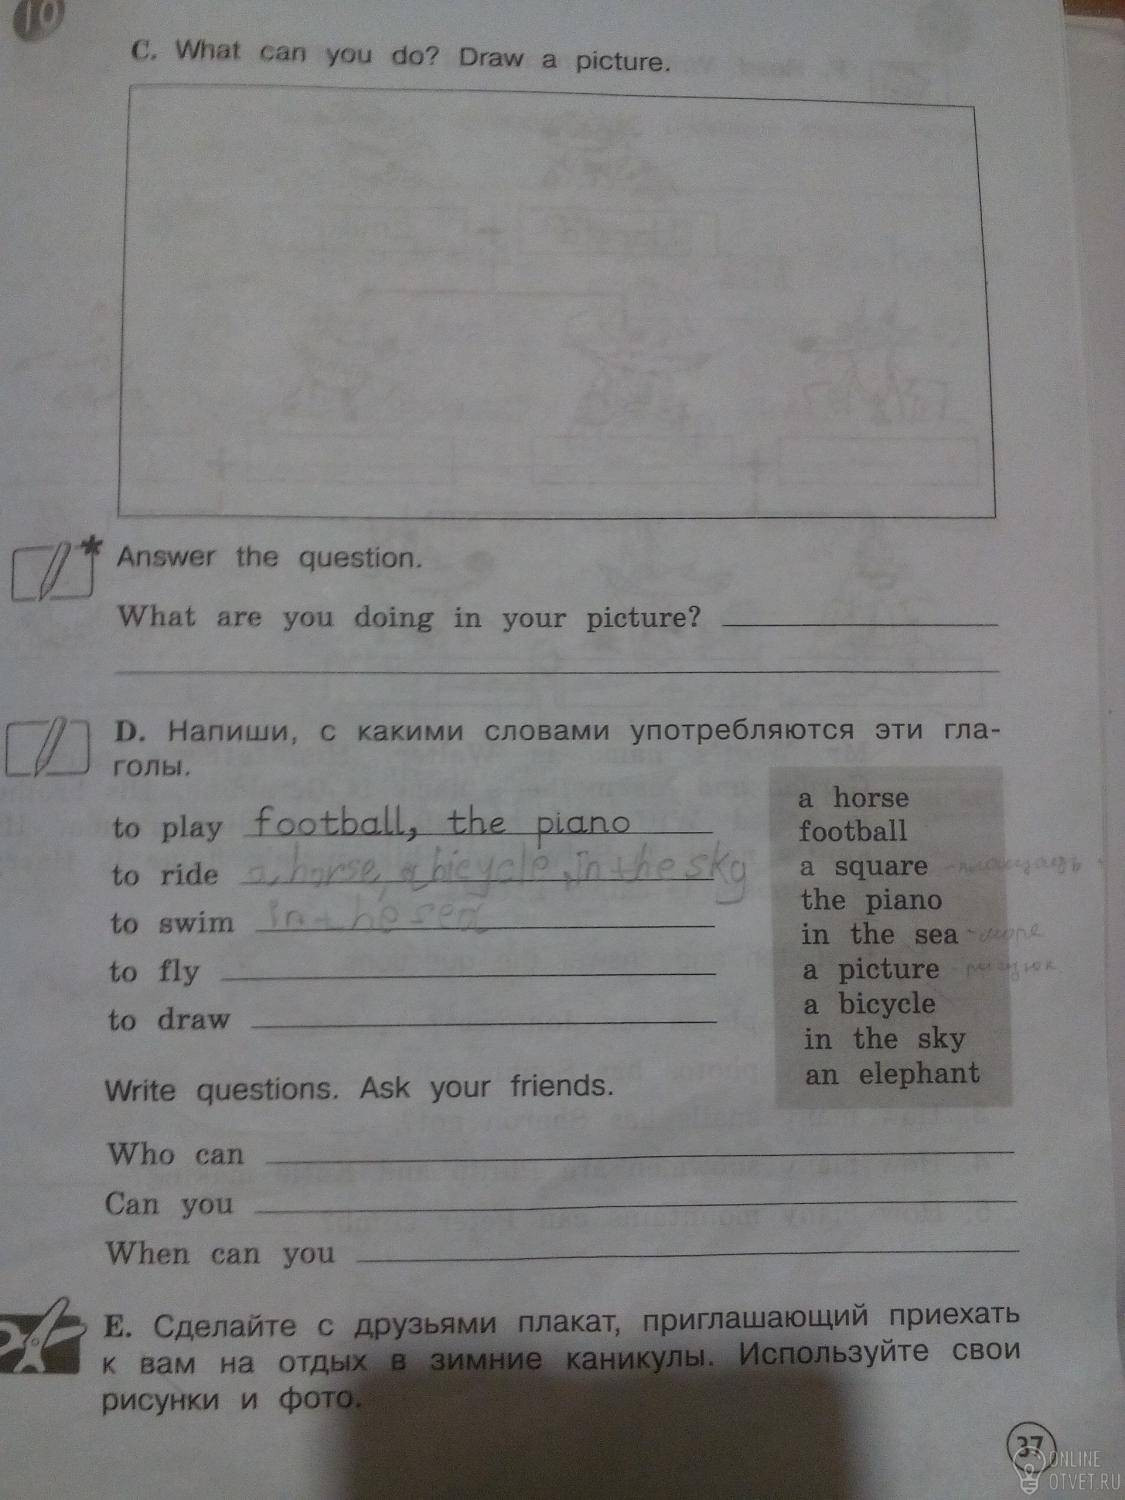 10
C. What can you do? Draw a picture.
Answer the question.
What are you doing in your picture?
D. Напиши, с какими словами употребляются эти гла-
голы.
to play football, the piano
to ride a horse, a bicycle, in the sky
to swim in the sea
to fly
to draw
a horse
football
a square - площадь
the piano
in the sea - море
a picture - рисунок
a bicycle
in the sky
an elephant
Write questions. Ask your friends.
Who can
Can you
When can you
E. Сделайте с друзьями плакат, приглашающий приехать
к вам на отдых в зимние каникулы. Используйте свои
рисунки и фото.
37
ONLINE
OTVET.RU